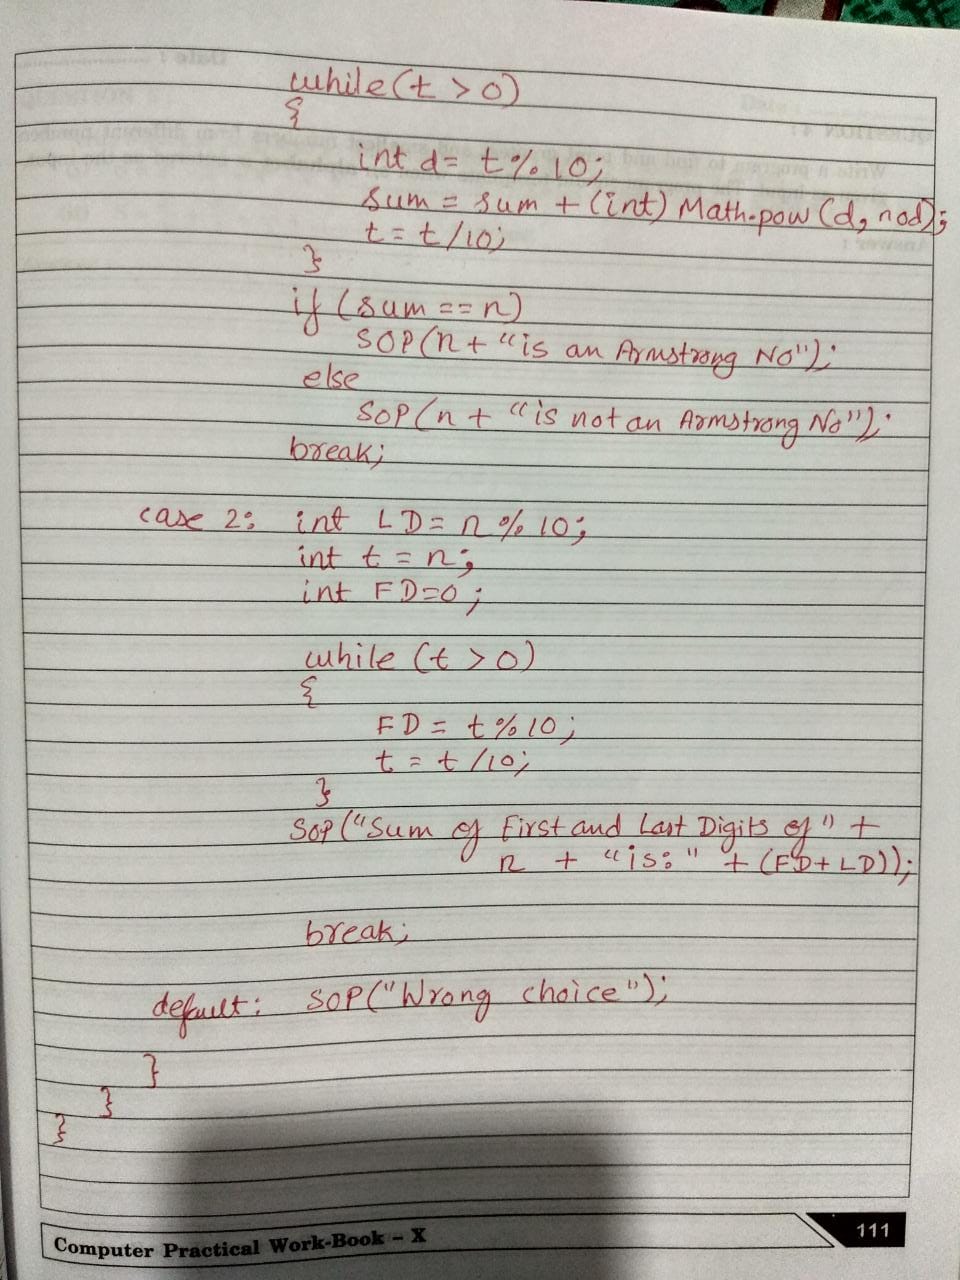 while (t > 0)
{
int d = t % 10;
sum = sum + (int) Math.pow (d, nod);
t = t /10;
}
if (sum == n)
SOP(n + "is an Armstrong No");
else
SOP(n + "is not an Armstrong No");
break;
case 2: int LD = n % 10;
int t = n;
int FD=0;
while (t > 0)
{
FD = t % 10;
t = t /10;
}
SOP ("Sum of First and Last Digits of" +
n + "is:" + (FD+LD));
break;
default: SOP("Wrong choice");
}
}
}
Computer Practical Work-Book – X
111